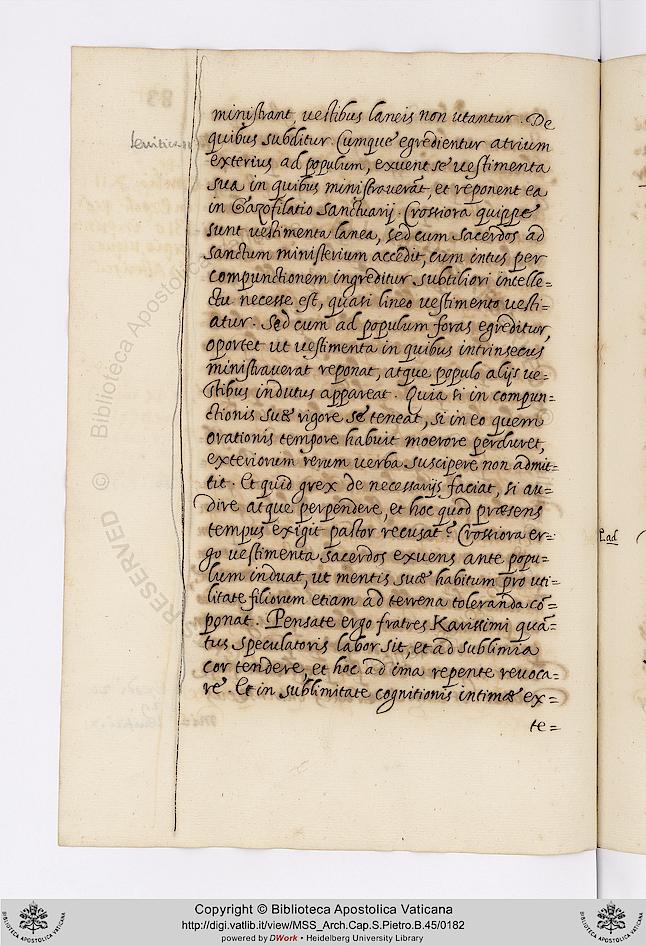 ministrant, vestibus laneis non utantur. De
quibus subditur. Cumque egredientur atrium
exterius ad populum, exuent se vestimenta
sua in quibus ministraverāt, et reponent ea
in Gazofilatio sanctuarij. Crossiora quippe
sunt vestimenta lanea, sed cum sacerdos ad
sanctum ministerium accedit, cum intus per
compunctionem ingreditur subtiliori intelle=
ctu necesse est, quasi lineo vestimento vesti=
atur. Sed cum ad populum foras egreditur,
oportet ut vestimenta in quibus intrinsecus
ministraverat reponat, atque populo alijs ve=
stibus indutus appareat. Quia si in compun=
ctionis suæ vigore se teneat, si in eo quem
orationis tempore habuit moerore perduret,
exteriorum rerum verba suscipere non admit=
tit. Et quid grex de necessarijs faciat, si au=
dire atque perpendere, et hoc quod præsens
tempus exigit pastor recusat? Crossiora er=
go vestimenta sacerdos exuens ante popu=
lum induat, ut mentis suæ habitum pro uti=
litate filiorum etiam ad terrena toleranda cō=
ponat. Pensate ergo fratres Karissimi quā=
tus speculatoris labor sit, et ad sublimia
cor tendere, et hoc ad ima repente revoca=
re. Et in sublimitate cognitionis intimæ ex=
te=
P.ad
© Biblioteca Apostolica Vaticana
RESERVED
Copyright © Biblioteca Apostolica Vaticana
http://digi.vatlib.it/view/MSS_Arch.Cap.S.Pietro.B.45/0182
powered by DWork • Heidelberg University Library